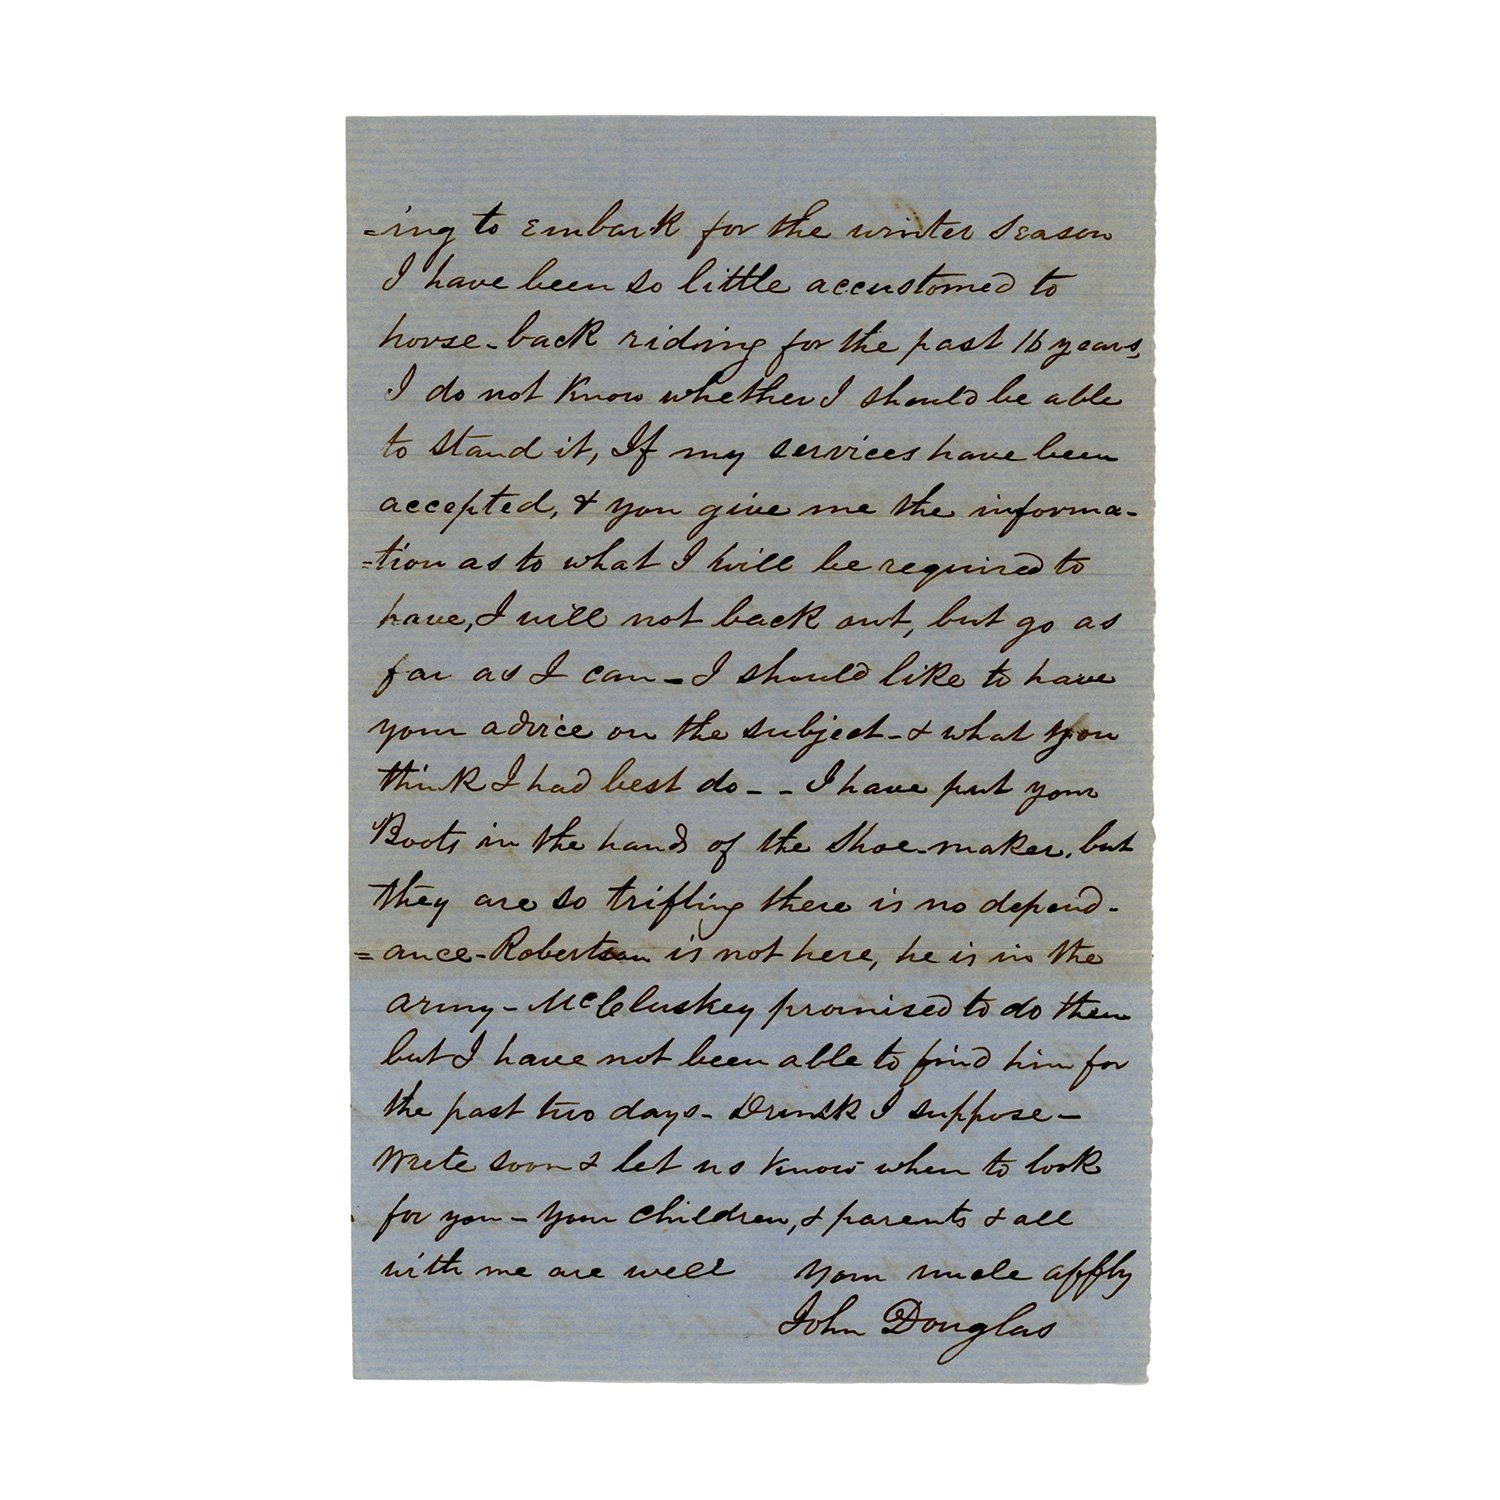 =ing to embark for the winter season
I have been so little accustomed to
horse-back riding for the past 16 years,
I do not know whether I should be able
to stand it, If my services have been
accepted, & you give me the informa-
=tion as to what I will be required to
have, I will not back out, but go as
far as I can - I should like to have
your advice on the subject - & what you
think I had best do - - I have put your
Boots in the hands of the shoe-maker, but
they are so trifling there is no depend-
=ance - Robertson is not here, he is in the
army - McCluskey promised to do them
but I have not been able to find him for
the past two days - Drunk I suppose -
Write soon & let us know when to look
for you - your children, & parents & all
with me are well your uncle affly
John Douglas